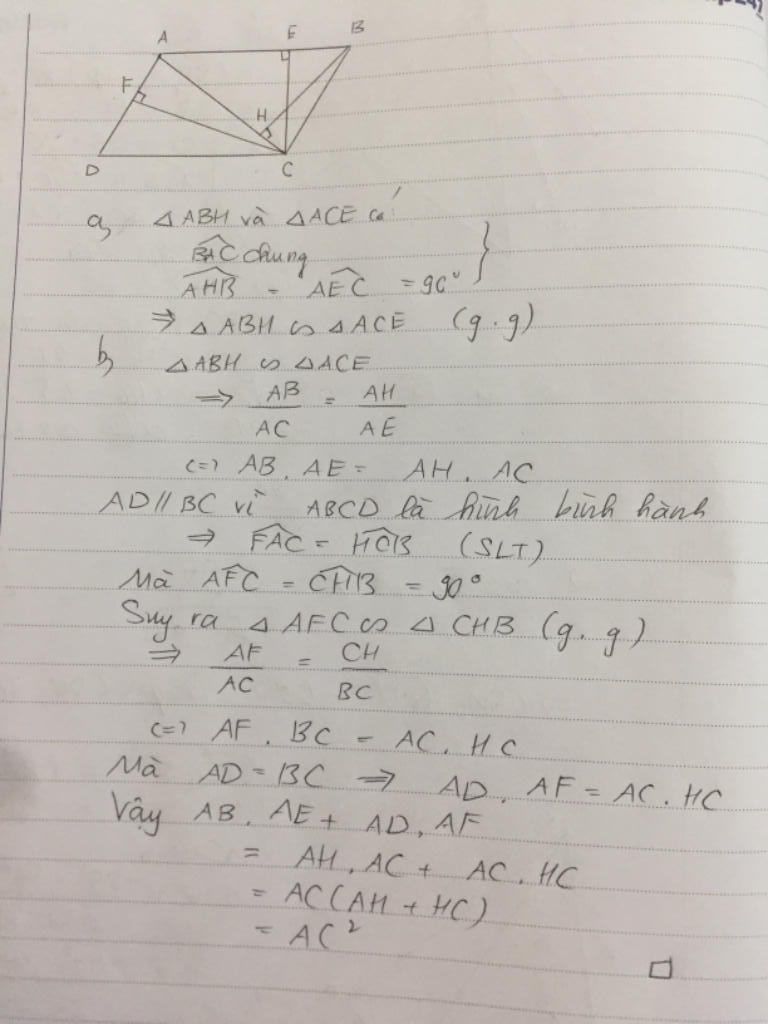 A E B
F
H
D C
a, △ABH và △ACE có
$\widehat{BAC}$ chung
$\widehat{AHB}$ = $\widehat{AEC}$ = 90° }
⇒ △ABH ∽ △ACE (g.g)
b, △ABH ∽ △ACE
⇒ $\frac{AB}{AC}$ = $\frac{AH}{AE}$
<=> AB . AE = AH . AC
AD // BC vì ABCD là hình bình hành
⇒ $\widehat{FAC}$ = $\widehat{HCB}$ (SLT)
Mà $\widehat{AFC}$ = $\widehat{CHB}$ = 90°
Suy ra △AFC ∽ △CHB (g.g)
⇒ $\frac{AF}{AC}$ = $\frac{CH}{BC}$
<=> AF . BC = AC . HC
Mà AD = BC ⇒ AD . AF = AC . HC
Vậy AB . AE + AD . AF
= AH . AC + AC . HC
= AC (AH + HC)
= AC²
□